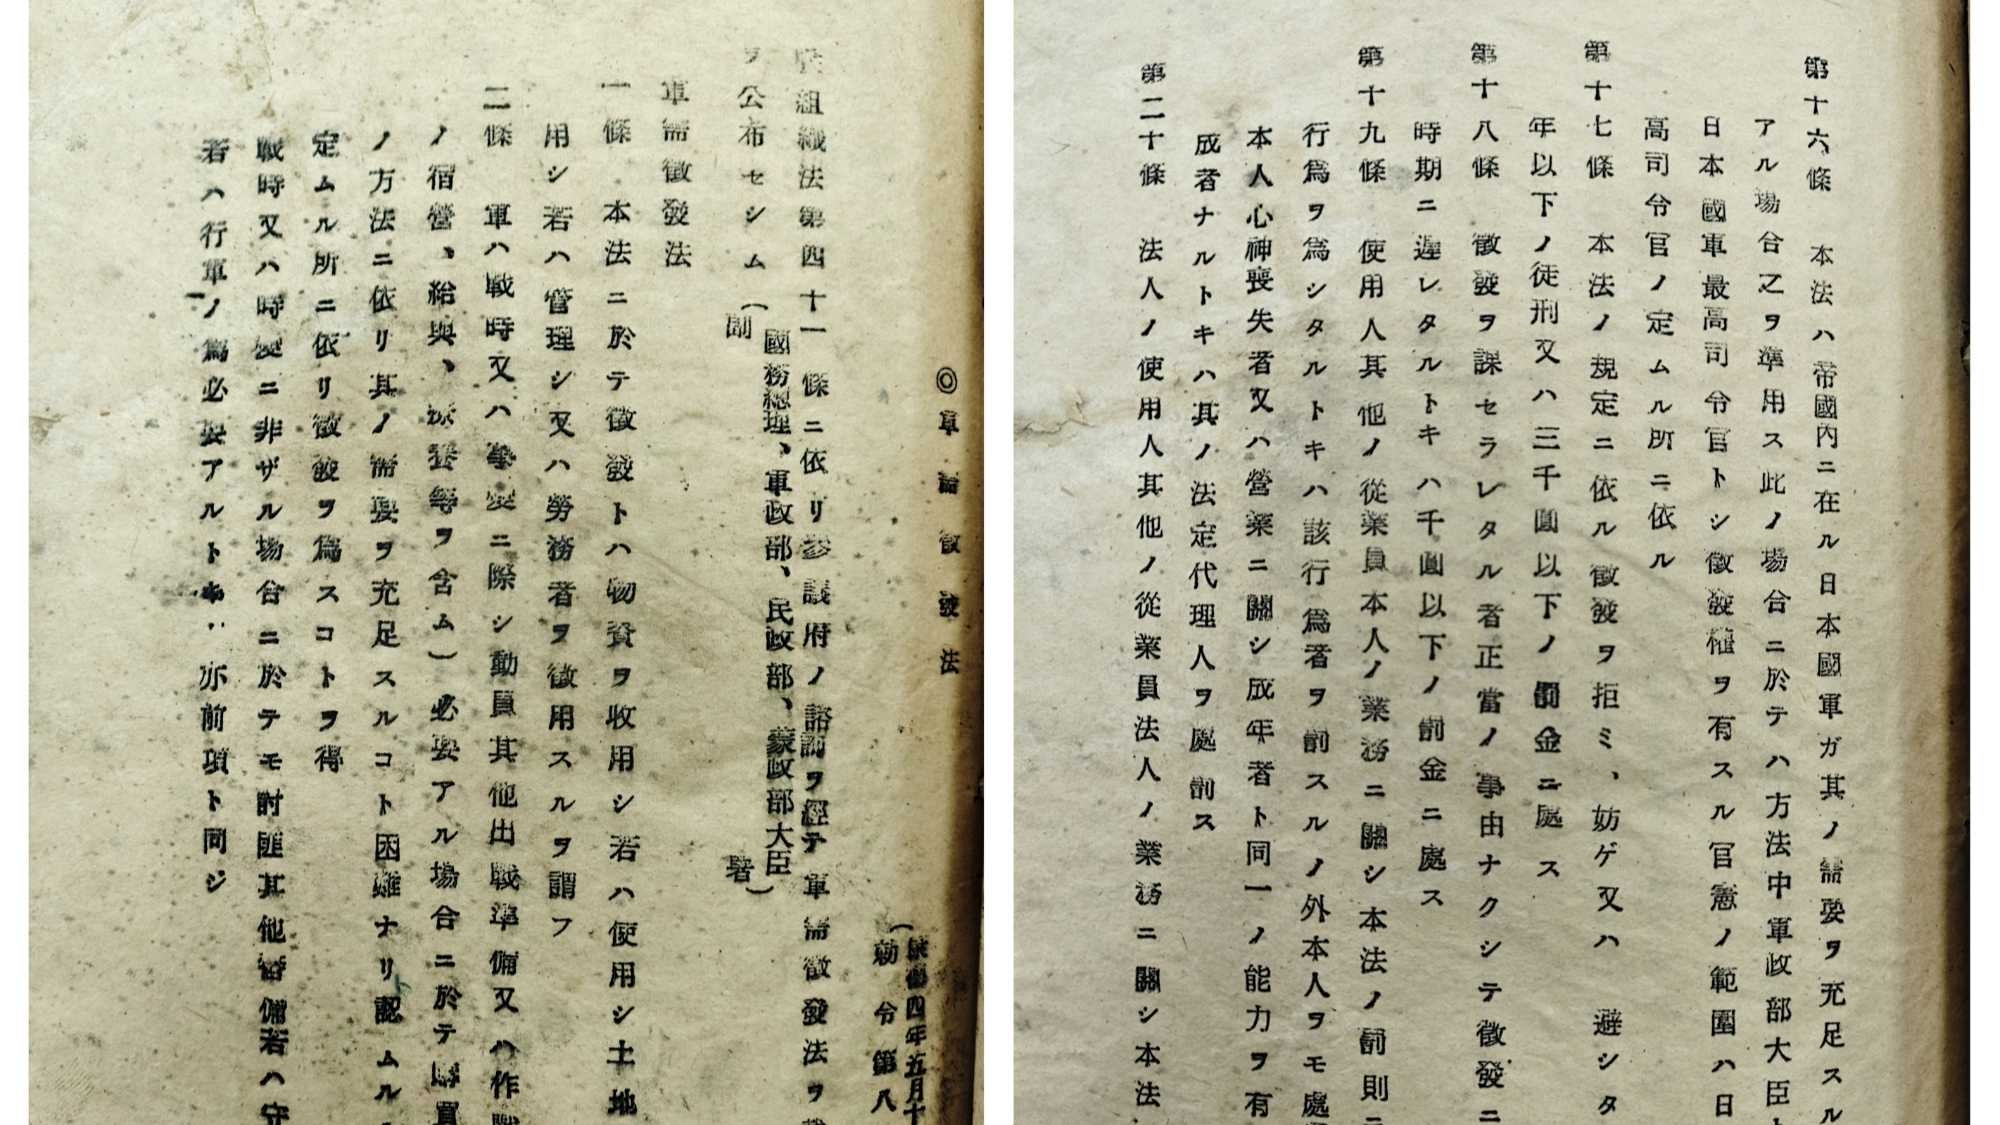 ◎軍需徵發法
康德四年五月十
勅令第八
組織法第四十一條ニ依リ參議府ノ諮詢ヲ經テ軍需徵發法ヲ
ヲ公布セシム
國務總理、軍政部、民政部、蒙政部大臣
副署
軍需徵發法
一條 本法ニ於テ徵發トハ物資ヲ收用シ若ハ使用シ土地
用シ若ハ管理シ又ハ勞務者ヲ徵用スルヲ謂フ
二條 軍ハ戰時又ハ事變ニ際シ動員其他出戰準備又ハ作戰
ノ宿營、給與、療養等ヲ含ム)必要アル場合ニ於テ購買
ノ方法ニ依リ其ノ需要ヲ充足スルコト困難ナリ認ムル
定ムル所ニ依リ徵發ヲ爲スコトヲ得
戰時又ハ時變ニ非ザル場合ニ於テモ討匪其他警備若ハ守
若ハ行軍ノ爲必要アルトキ亦前項ト同ジ
第十六條 本法ハ帝國內ニ在ル日本國軍ガ其ノ需要ヲ充足スル
アル場合之ヲ準用ス此ノ場合ニ於テハ方法中軍政部大臣ト
日本國軍最高司令官トシ徵發權ヲ有スル官憲ノ範圍ハ日
高司令官ノ定ムル所ニ依ル
第十七條 本法ノ規定ニ依ル徵發ヲ拒ミ、妨ゲ又ハ 避シタ
年以下ノ徒刑又ハ三千圓以下ノ罰金ニ處ス
第十八條 徵發ヲ課セラレタル者正當ノ事由ナクシテ徵發ニ
時期ニ遲レタルトキハ千圓以下ノ罰金ニ處ス
第十九條 使用人其他ノ從業員本人ノ業務ニ關シ本法ノ罰則ニ
行爲ヲ爲シタルトキハ該行爲者ヲ罰スルノ外本人ヲモ處
本人心神喪失者又ハ營業ニ關シ成年者ト同一ノ能力ヲ有
成者ナルトキハ其ノ法定代理人ヲ處罰ス
第二十條 法人ノ使用人其他ノ從業員法人ノ業務ニ關シ本法